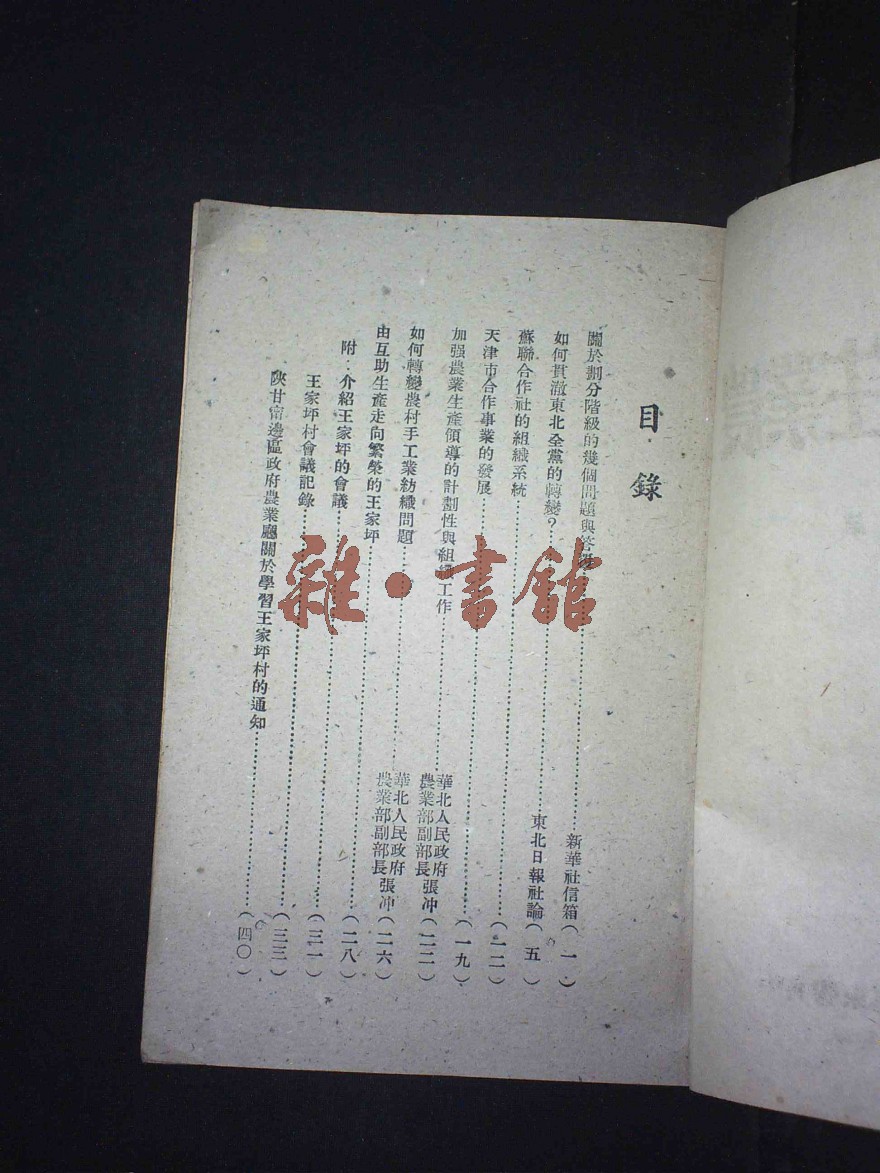 目錄
關於劃分階級的幾個問題與答……新華社信箱（一）
如何貫澈東北全黨的轉變？……東北日報社論（五）
蘇聯合作社的組織系統……（一二）
天津市合作事業的發展……（一九）
加强農業生產領導的計劃性與組織工作……華北人民政府農業部副部長張冲（二二）
如何轉變農村手工業紡織問題……華北人民政府農業部副部長張冲（二六）
由互助生產走向繁榮的王家坪……（二八）
附：介紹王家坪的會議……（三一）
王家坪村會議記錄……（三三）
陝甘甯邊區政府農業廳關於學習王家坪村的通知……（四〇）
雜·書館